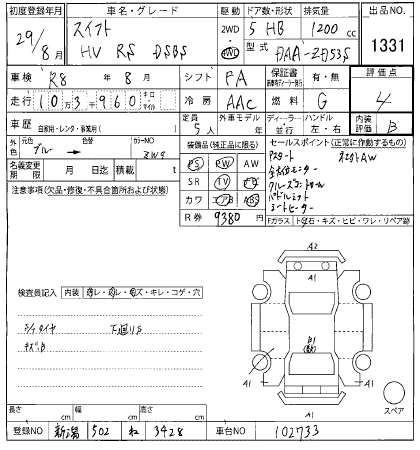 初度登録年月 車名・グレード 駆動 ドア数・形状 排気量 出品NO.
29/8月 スイフト HV RS DSBS 2WD 4WD 5 HB 1200 cc 1331
型式 DAA-ZD53S
車検 R8年 8月 シフト FA 保証書 有・無 評価点
走行 10万3千960 キロ マイル 冷房 AAC 燃料 G 4
車歴 自家用・レンタ・事業用( ) 定員 5人 外車モデル 年 ディーラー 並行 ハンドル 左・右 内装評価 B
外色 元色 ブルー→ 色替 カラーNO ZWG
装備品(純正品に限る) セールスポイント(正常に作動するもの)
名義変更期限 月 日迄 積載 t
PS PW AW
SR TV
カワ エアB ABS
R券 9380円
Pスタート 社外AW
クルーズコントロール
パドルシフト
シートヒーター
注意事項(欠品・修復・不具合箇所および状態)
Fガラス トビ石・キズ・ヒビ・ワレ・リペア跡
A2
A1 A1
検査員記入 内装 ヨゴレ・スレ・コゲ・穴
下廻りS
キズ凹
A1 A1
A1
スペア
長さ cm 幅 cm 高さ cm
登録NO 新潟 502 ね 3428 車台NO 102733